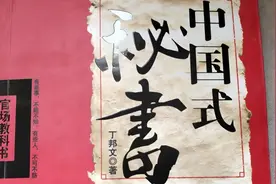 中国式
秘書
丁邦文©著
官场教科书